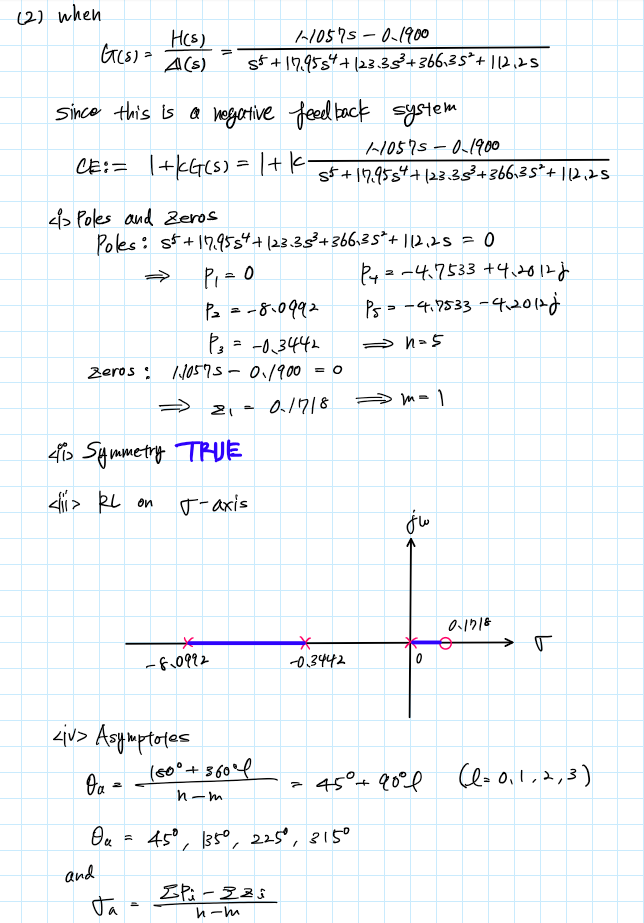 (2) when
G(s) = H(s)/Δ(s) = (1.1057s - 0.1900)/(s⁵ + 17.95s⁴ + 123.3s³ + 366.3s² + 112.2s)
Since this is a negative feedback system
CE := 1 + kG(s) = 1 + k (1.1057s - 0.1900)/(s⁵ + 17.95s⁴ + 123.3s³ + 366.3s² + 112.2s)
<i> Poles and zeros
Poles : s⁵ + 17.95s⁴ + 123.3s³ + 366.3s² + 112.2s = 0
⇒ P₁ = 0 P₄ = -4.7533 + 4.2012j
P₂ = -8.0992 P₅ = -4.7533 - 4.2012j
P₃ = -0.3442 ⇒ n = 5
zeros : 1.1057s - 0.1900 = 0
⇒ z₁ = 0.1718 ⇒ m = 1
<ii> Symmetry TRUE
<iii> RL on σ-axis
jω
0.1718
σ
-8.0992 -0.3442 0
<iv> Asymptotes
θₐ = (180° + 360°l)/(n-m) = 45° + 90°l (l = 0, 1, 2, 3)
θₐ = 45°, 135°, 225°, 315°
and
σₐ = (Σpᵢ - Σzᵢ)/(n-m)